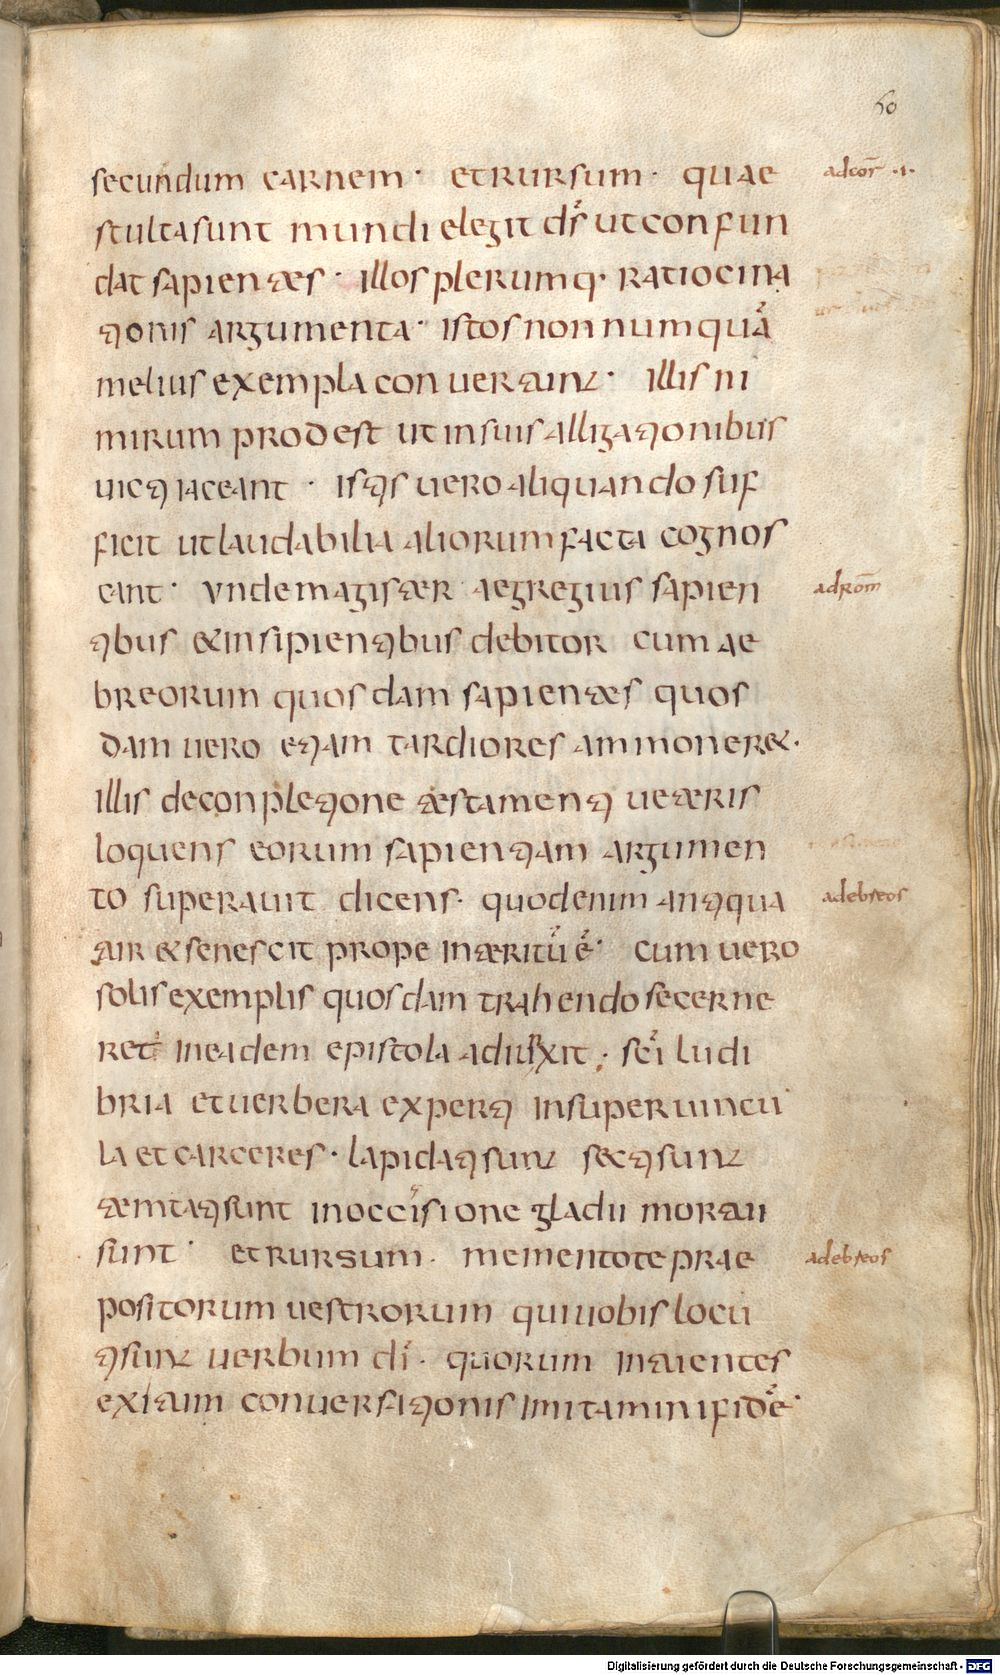 60
secundum carnem · et rursum · quae
adcor̄ ·1·
stulta sunt mundi elegit dſ ut confun
dat sapientes · illos plerumq· ratiocina
tionis argumenta · istos nonnumquā
melius exempla convertunt · illis ni
mirum prodest ut in suis alligationibus
victi iaceant · istis vero aliquando suf
ficit ut laudabilia aliorum facta cognos
cant · unde magister aegregius sapien
adrom̄
tibus & insipientibus debitor cum ae
breorum quosdam sapientes quos
dam vero etiam tardiores ammoner&·
illis de conpletione testamenti veteris
loquens eorum sapientiam argumen
to superavit dicens · quod enim antiqua
adebreos
tur & senescit prope interitū ē · cum vero
solis exemplis quosdam trahendos cerne
ret in eadem epistola adiunxit · sc̄i ludi
bria et verbera experti insuper vincu
la et carceres · lapidati sunt secti sunt
temtati sunt in occisione gladii mortui
sunt · et rursum · mementote prae
adebreos
positorum vestrorum qui vobis locu
ti sunt verbum dī · quorum intuentes
exitum conversationis imitamini fidē ·
Digitalisierung gefördert durch die Deutsche Forschungsgemeinschaft - DFG